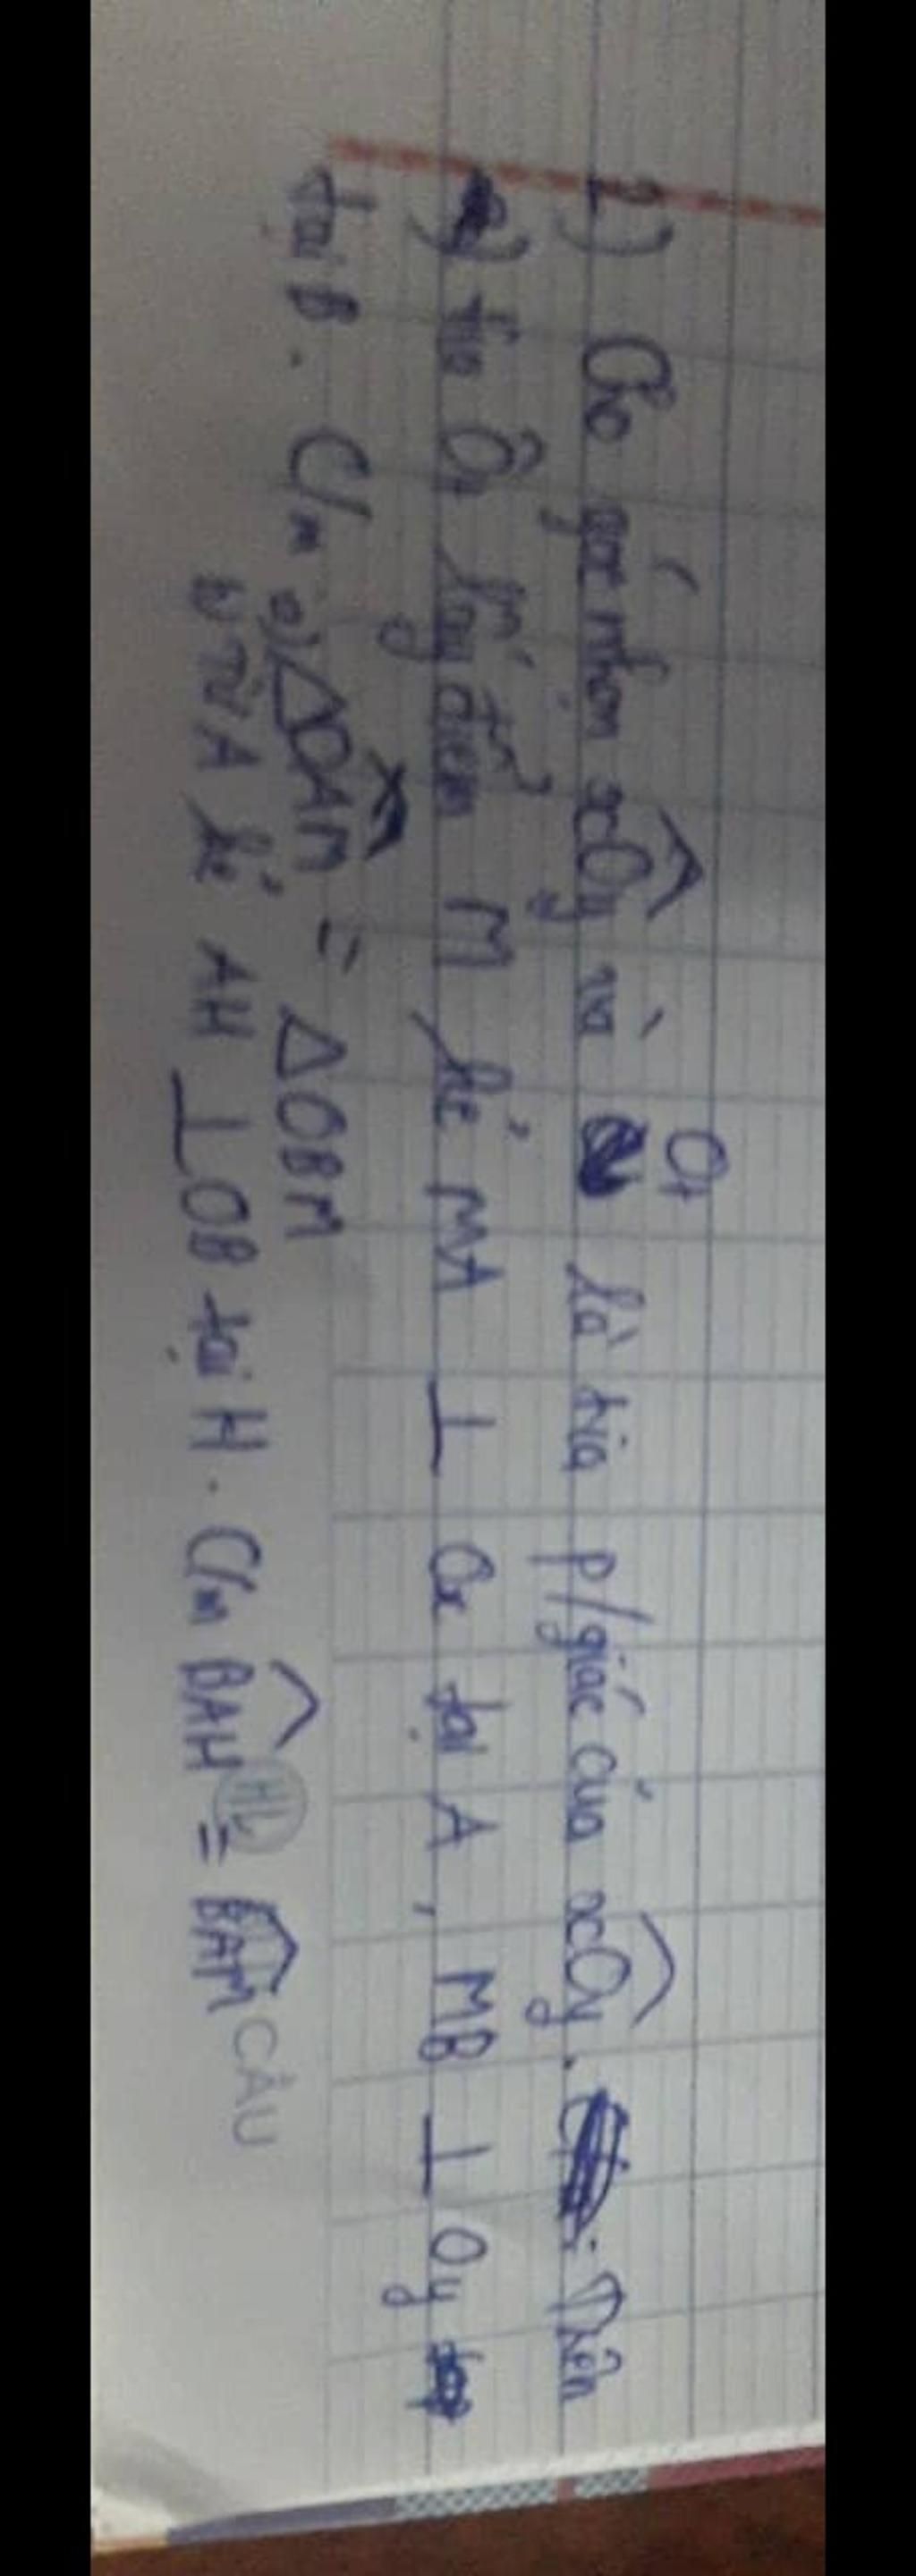 2) Cho góc nhọn xOy và Ot là tia p/giác của xOy. Trên
tia Ot lấy điểm M kẻ MA ⊥ Ox tại A, MB ⊥ Oy
tại B. C/m a) ΔOAM = ΔOBM
b) Từ A kẻ AH ⊥ OB tại H. C/m BAH = BAM